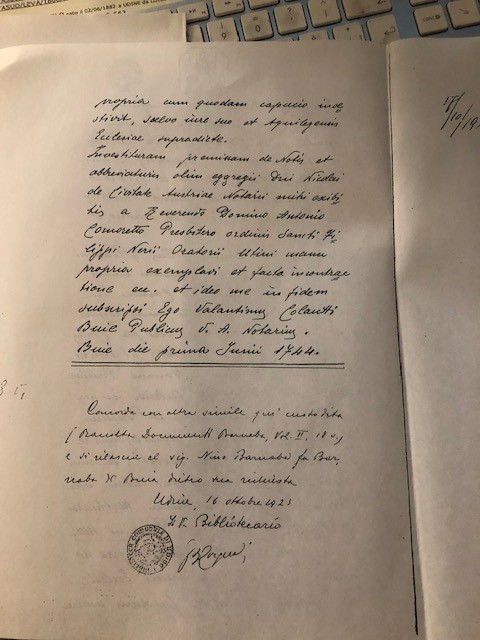 propria cum quodam capucio inde
stivit, salvo iure suo et Aquilegensis
Ecclesiae supradicte.
Investituram premissam de Notis et
abbreviaturis olim egregii Dni Nicolai
de Civitate Austriae Notarii mihi exibi
tis a Reverendo Domino Antonio
Comoretto Presbitero ordinis Sancti Fi
lippi Nerii Oratorii Utini manu
propria exemplavi et facta incontrac
tione ec. et ideo me in fidem
subscripsi Ego Valantinus Colautti
Buie Publicus V. A. Notarius.
Buie die prima Junii 1744.
Concorda con altra simile qui custodita
(Raccolta Documenti Barnaba, Vol. II, 18
e si rilascia al sig. Nino Barnaba fu Bar
naba di Buia dietro sua richiesta
Udine, 16 ottobre 1923
Il Bibliotecario
17/
10/19